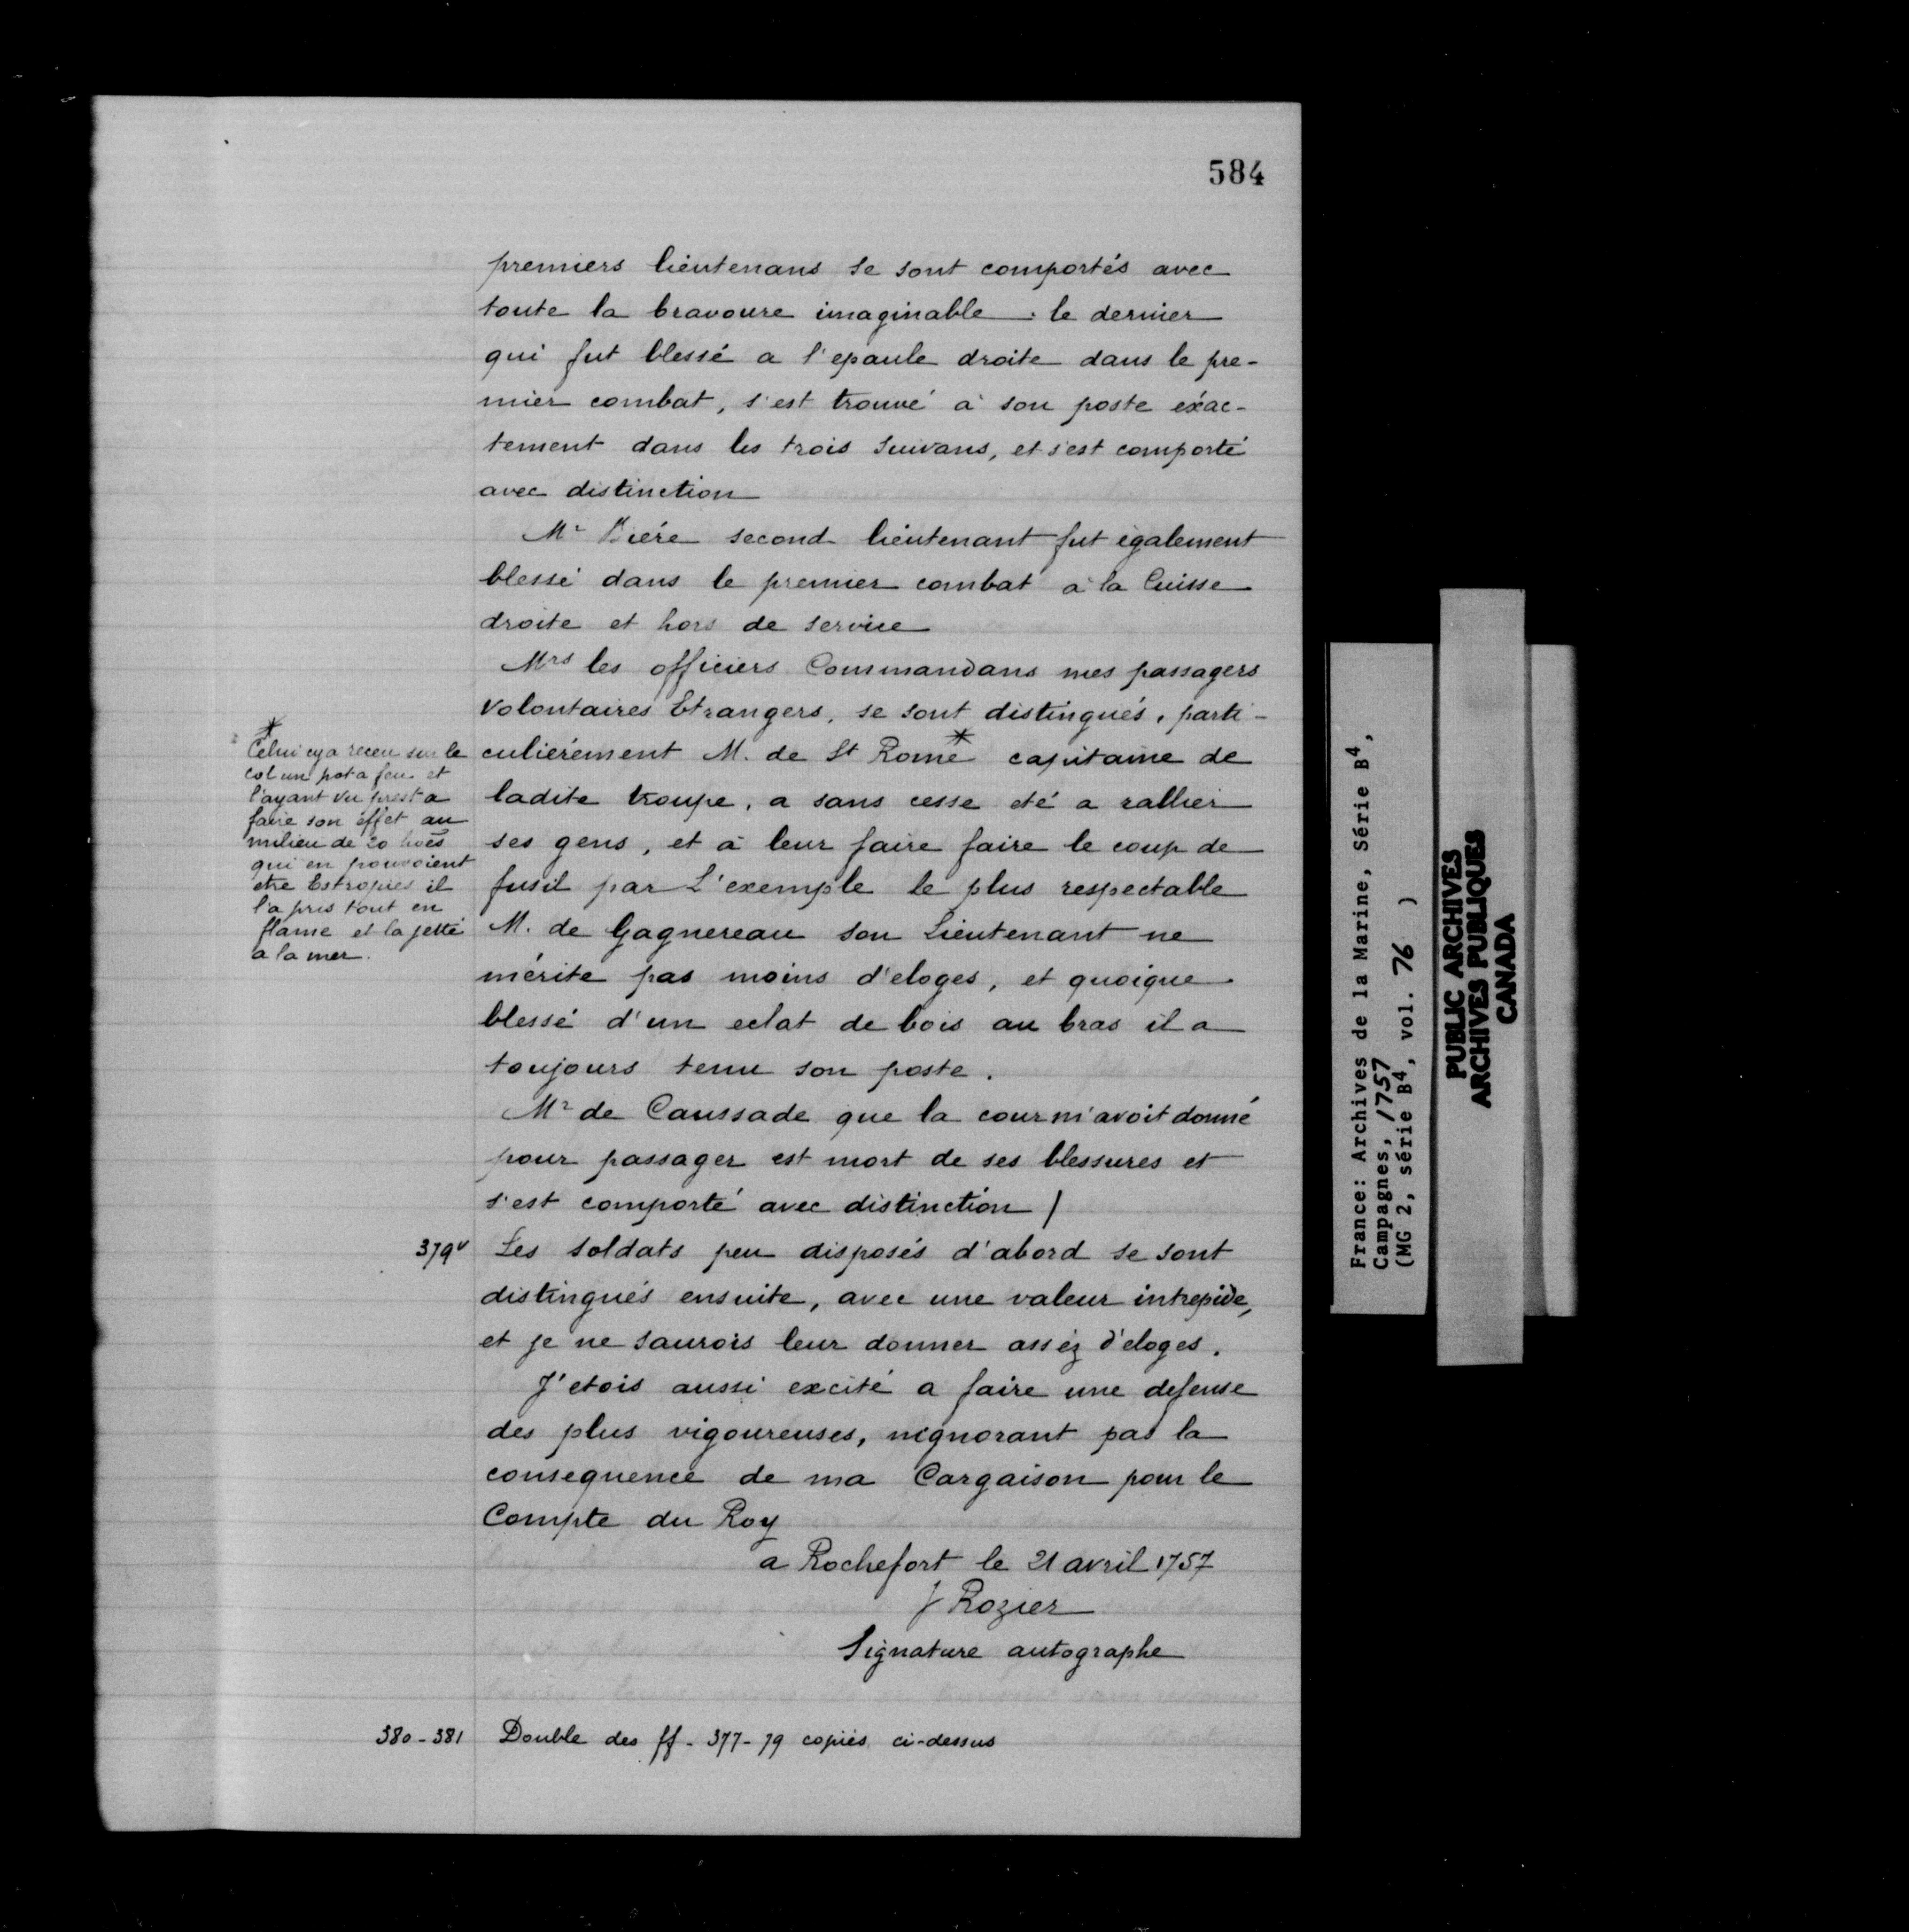 584
premiers lieutenans se sont comportés avec
toute la bravoure imaginable. le dernier
qui fut blessé a l'epaule droite dans le pre-
mier combat, s'est trouvé à son poste éxac-
tement dans les trois suivans, et s'est comporté
avec distinction
Mr second lieutenant fut également
blessé dans le premier combat à la Cuisse
droite et hors de service
Mrs les officiers Commandans mes passagers
volontaires Etrangers, se sont distingués, parti-
culiérement M. de St Rome * capitaine de
ladite troupe, a sans cesse eté a rallier
ses gens, et à leur faire faire le coup de
fusil par L'exemple le plus respectable
M. de Gagnereau son Lieutenant ne
mérite pas moins d'eloges, et quoique
blessé d'un eclat de bois au bras il a
toujours tenu son poste.
Mr de Caussade que la cour m'avoit donné
pour passager est mort de ses blessures et
s'est comporté avec distinction /
*
Celui cy a receu sur le
col un pot a feu et
l'ayant vu prest a
faire son éffet au
milieu de 20 hoēs
qui en pouvoient
etre Estropiés il
l'a pris tout en
flame et la jetté
a la mer.
379v Les soldats peu disposés d'abord se sont
distingués ensuite, avec une valeur intrepide,
et je ne saurois leur donner asséz d'eloges.
J'etois aussi excité a faire une defense
des plus vigoureuses, n'ignorant pas la
consequence de ma Cargaison pour le
Compte du Roy
a Rochefort le 21 avril 1757
J Rozier
Signature autographe
380-381 Double des ff. 377-79 copiés ci-dessus
France: Archives de la Marine, Série B4,
Campagnes, 1757
(MG 2, série B4, vol. 76 )
PUBLIC ARCHIVES
ARCHIVES PUBLIQUES
CANADA